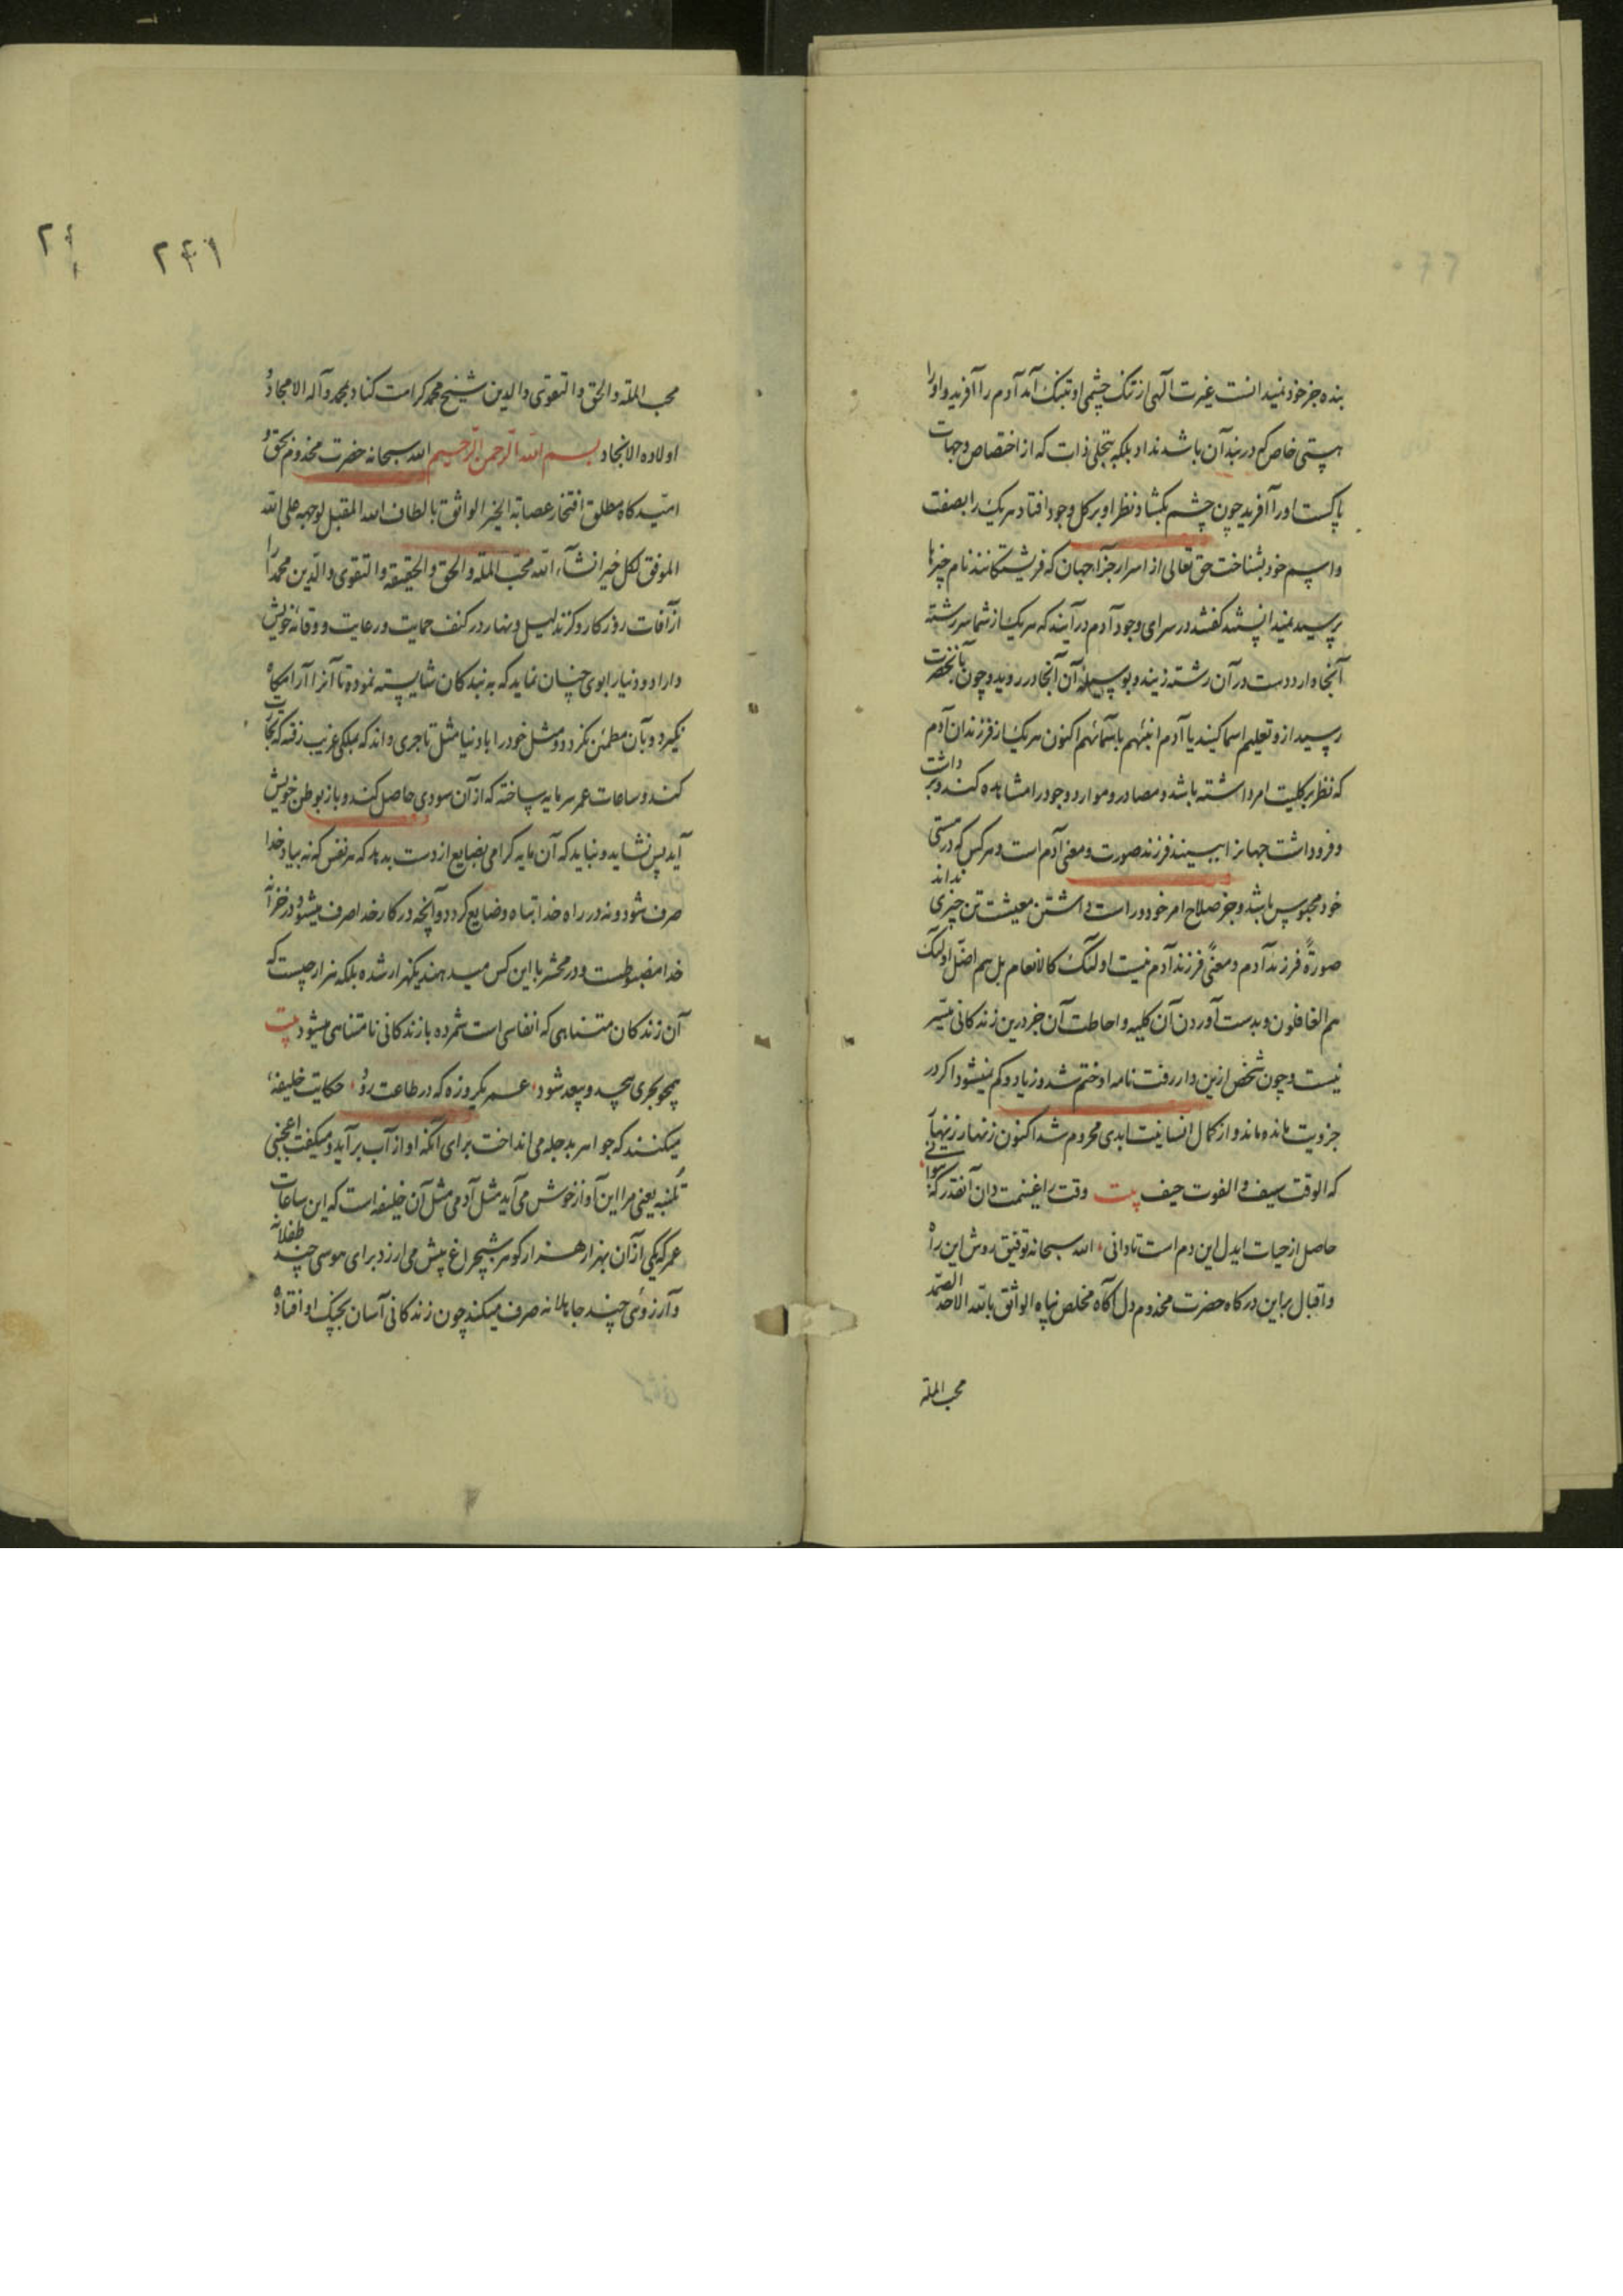 بنده جز خود نمیدانست غیرت الهی از تنک چشمی او بتنک آمد آدم را آفرید و او را
هستی خاص که در بند آن باشد نداد بلکه بتجلی ذات که از اختصاص و جهات
پاکست او را آفرید چون چشم بکشاد نظر او بر کل وجود افتاد هر یک را بصفت
و اسم خود بشناخت حق تعالی از اسرار جزء جهان که فریشتکانند نام چیزها
پرسید نمیدانستند کفتند در سرای وجود آدم درآیند که هر یک از شما سررشته
آنجا دارد دست در آن رشته زنید و بوسیله آن آنجا در روید و چون بآنحضرت
رسید ازو تعلیم اسما کنید یا آدم انبئهم باسمائهم اکنون هر یک از فرزندان آدم
که نظر بر کلیت امر داشته باشد و مصادر و موارد وجود را مشاهده کند و برداشت
و فروداشت جهانرا ببیند فرزند صورت و معنی آدم است و هر کس که در هستی
خود محبوس باشد و جز صلاح امر خود و راست داشتن معیشت تن چیزی نداند
صورةً فرزند آدم و معنیً فرزند آدم نیست اولئک کالانعام بل هم اضل اولئک
هم الغافلون و بدست آوردن آن کلیه و احاطت آن جز درین زندکانی میسر
نیست و چون شخص ازین دار رفت نامه او ختم شد و زیاد و کم نمیشود اکر در
جزویت مانده ماند و از کمال انسانیت ابدی محروم شد اکنون زنهار زینهار
که الوقت سیف و الفوت حیف بیت وقت را غنیمت دان آنقدر که بتوانی
حاصل از حیات ایدل این دم است تا دانی الله سبحانه توفیق روش این راه
و اقبال بر این درکاه حضرت مخدوم دل آکاه مخلص پناه الواثق بالله الاحد الصمد
محب الملة
۲۴۱
محب الملة والحق والتقوی والدین شیخ محمد کرامت کناد بمحمد وآله الامجاد و
اولاده الانجاد بسم الله الرحمن الرحیم الله سبحانه حضرت مخدوم بحق و
امیدکاه مطلق افتخار عصابة الخیر الواثق بالطاف الله المقبل بوجهه علی الله
الموفق لکل خیر انشآء الله محب الملة والحق والحقیقة والتقوی والدین محمد را
از آفات روزکار و کزند لیل و نهار در کنف حمایت و رعایت و وقایه خویش
داراد و دنیا را بوی چنان نماید که به بندکان شایسته نموده تا آنرا آرامکاه
نکیرد و بآن مطمئن نکردد و مثل خود را با دنیا مثل تاجری داند که بملکی غریب رفته که تجارت
کند و ساعات عمر سرمایه ساخته که از آن سودی حاصل کند و باز بوطن خویش
آید پس نشاید و نباید که آن مایه کرامی بضایع از دست بدهد که هر نفس که نه بیاد خدا
صرف شود و نه در راه خدا تباه و ضایع کردد و آنچه در کار خدا صرف میشود در خزانه
خدا مضبوطست و در محشر با این کس میدهند یکهزار شده بلکه هزار چیست که
آن زندکان متناهی که انفاسی است شمرده با زندکانی نامتناهی میشود بیت
همچو بحری بیحد و بیعد شود عمر یکروزه که در طاعت رود حکایت خلیفه
میکنند که جواهر بدجله می انداخت برای آنکه آواز آب برآید و میکفت اعجبنی
یعنی مرا این آواز خوش می آید مثل آدمی مثل آن خلیفه است که این ساعات
عمر که یکی از آن بهزار هزار کوهر شبچراغ بیش می ارزد برای هوسی چند طفلانه
و آرزوئی چند جاهلانه صرف میکند چون زندکانی آسان بچنک او افتاده